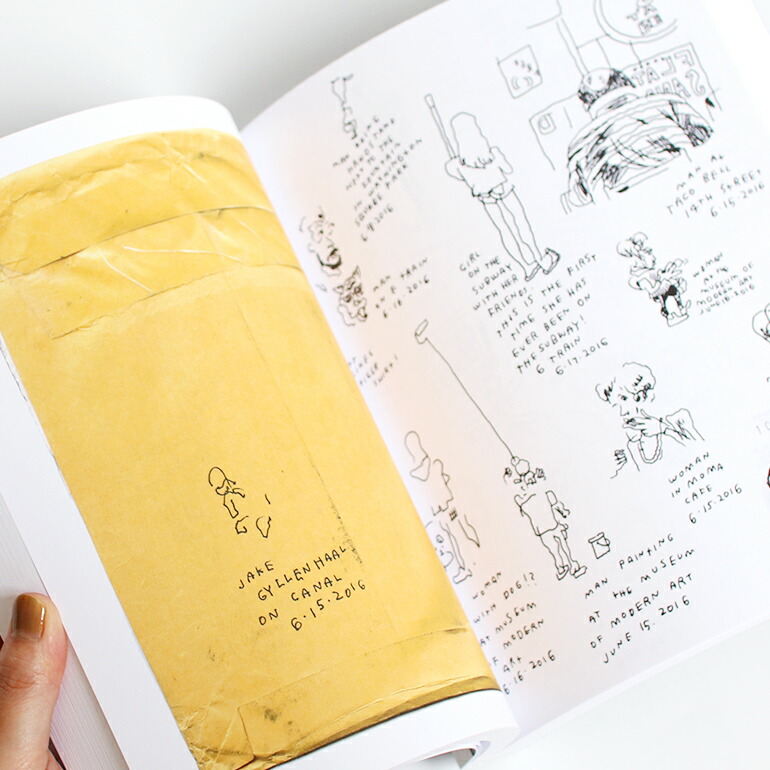 JAKE
GYLLENHAAL
ON CANAL
6·15·2016
MAN DOING
HANDSTAND
NEXT TO THE
FOUNTAIN
IN WASHINGTON
SQUARE PARK
MAN
ON F TRAIN
GIRL
ON THE
SUBWAY
WITH HER
FRIENDS.
THIS IS THE FIRST
TIME SHE HAS
EVER BEEN ON
THE SUBWAY!
6 TRAIN
6·17·2016
MAN AT
TACO BELL
14TH STREET
6·15·2016
WOMAN
IN THE
MUSEUM OF
MODERN ART
WOMAN
IN MOMA
CAFE
6·15·2016
WOMAN
WITH DOG!?
AT MUSEUM
OF MODERN
ART
6·16·2016
MAN PAINTING
AT THE MUSEUM
OF MODERN ART
JUNE 15, 2016